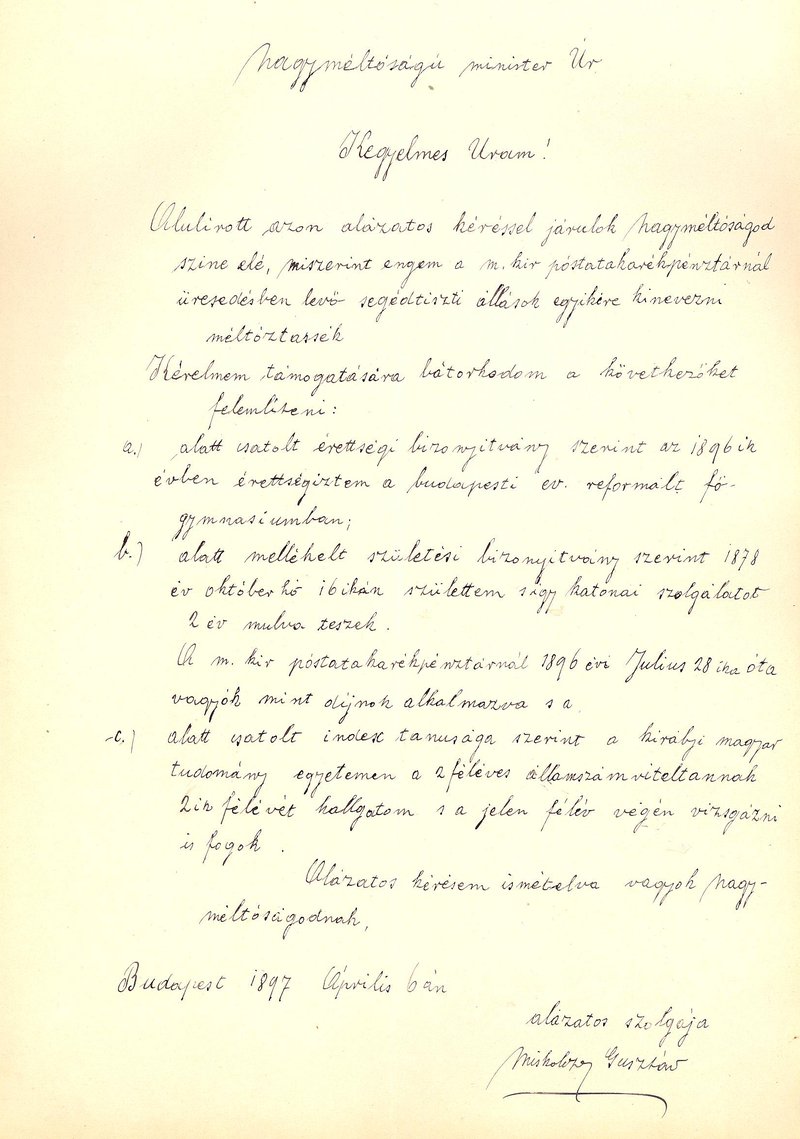 Nagyméltóságú minister Úr
Kegyelmes Uram!
Alulirott azon alázatos kéréssel járulok Nagyméltóságod
szine elé, miszerint engem a m. kir póstatakarékpénztárnál
üresedésben levő segédtiszti állások egyikére kinevezni
méltóztassék
Kérelmem támogatására bátorkodom a következőket
felemliteni:
a.) alatt csatolt érettségi bizonyitvány szerint az 1896 ik
évben érettségiztem a budapesti ev. reformált fő-
gymnasiumban;
b.) alatt mellékelt születési bizonyitvány szerint 1878
év október hó 16 ikán születtem s igy katonai szolgálatot
2 év mulva teszek.
A m. kir póstatakarékpénztárnál 1896 évi Július 28 ika óta
vagyok mint dijnok alkalmazva s a
c.) alatt csatolt index tanusága szerint a királyi magyar
tudomány egyetemen a 2 féléves államszámviteltannak
2ik félévét hallgatom s a jelen félév végén vizsgázni
is fogok.
Alázatos kérésem ismételve vagyok Nagy-
méltóságodnak,
Budapest 1897 Április 6 án
alázatos szolgája
Miskolczy Gusztáv